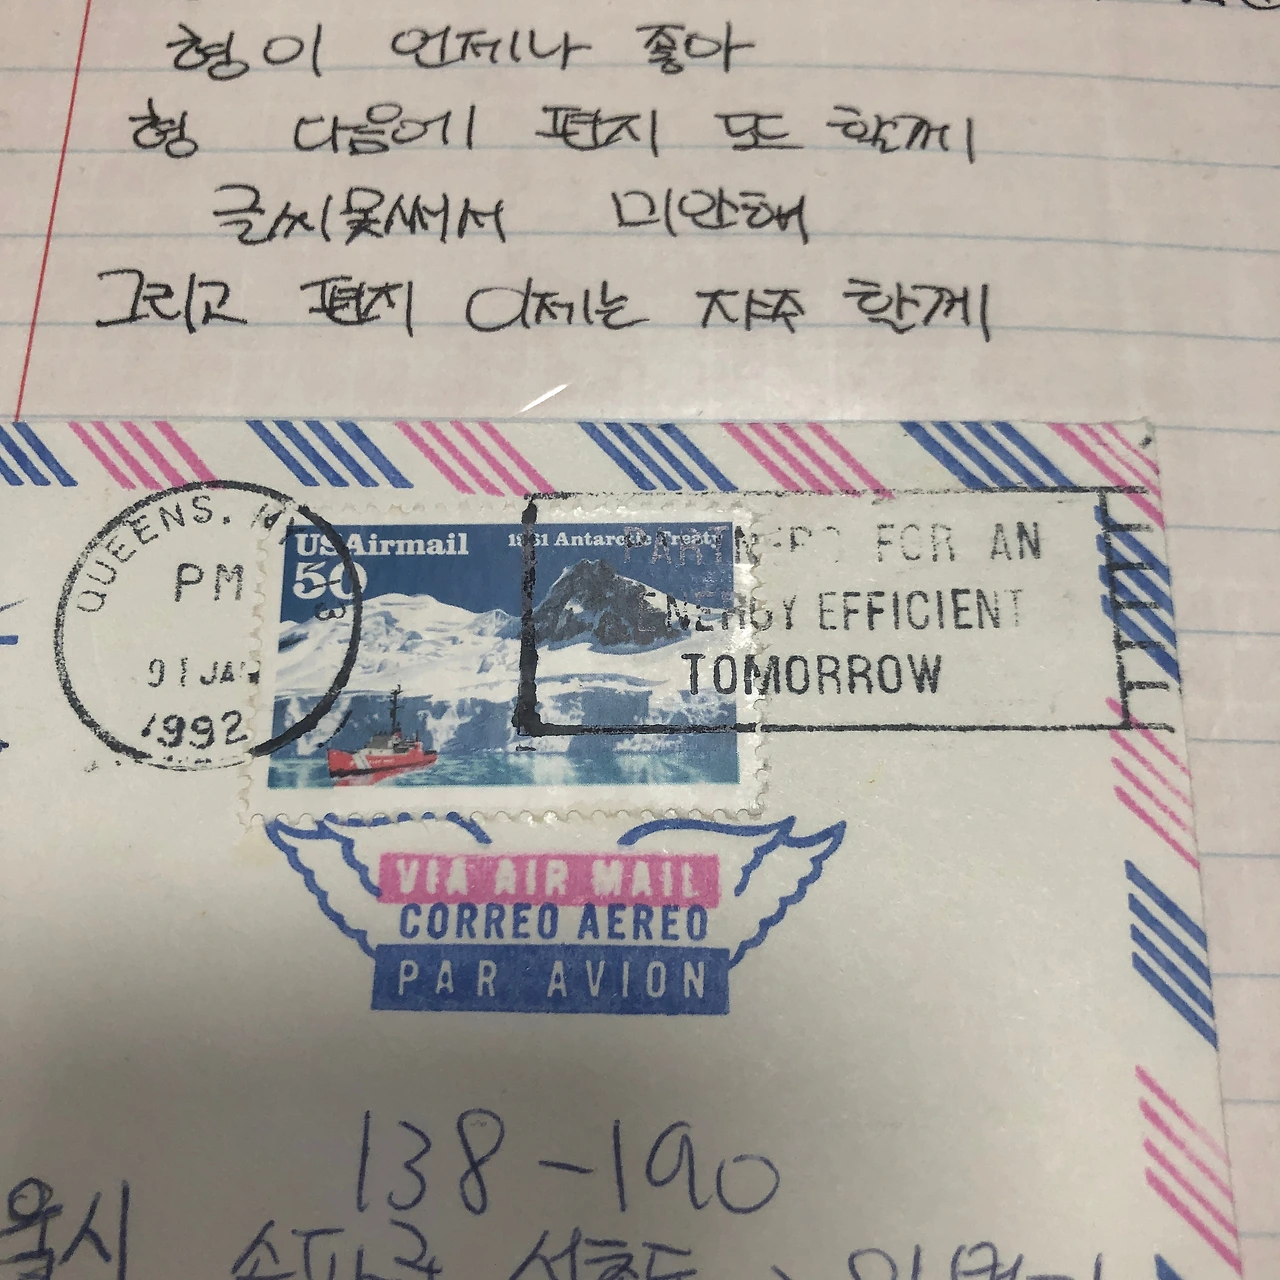 형이 언제나 좋아
형 다음에 편지 또 할께
글씨못써서 미안해
그리고 편지 이제는 자주 할께
QUEENS, NY
PM
01 JAN
1992
USAirmail
50
1961 Antarctic Treaty
PARTNERS FOR AN
ENERGY EFFICIENT
TOMORROW
VIA AIR MAIL
CORREO AEREO
PAR AVION
138-190
울시 송파구 석촌동